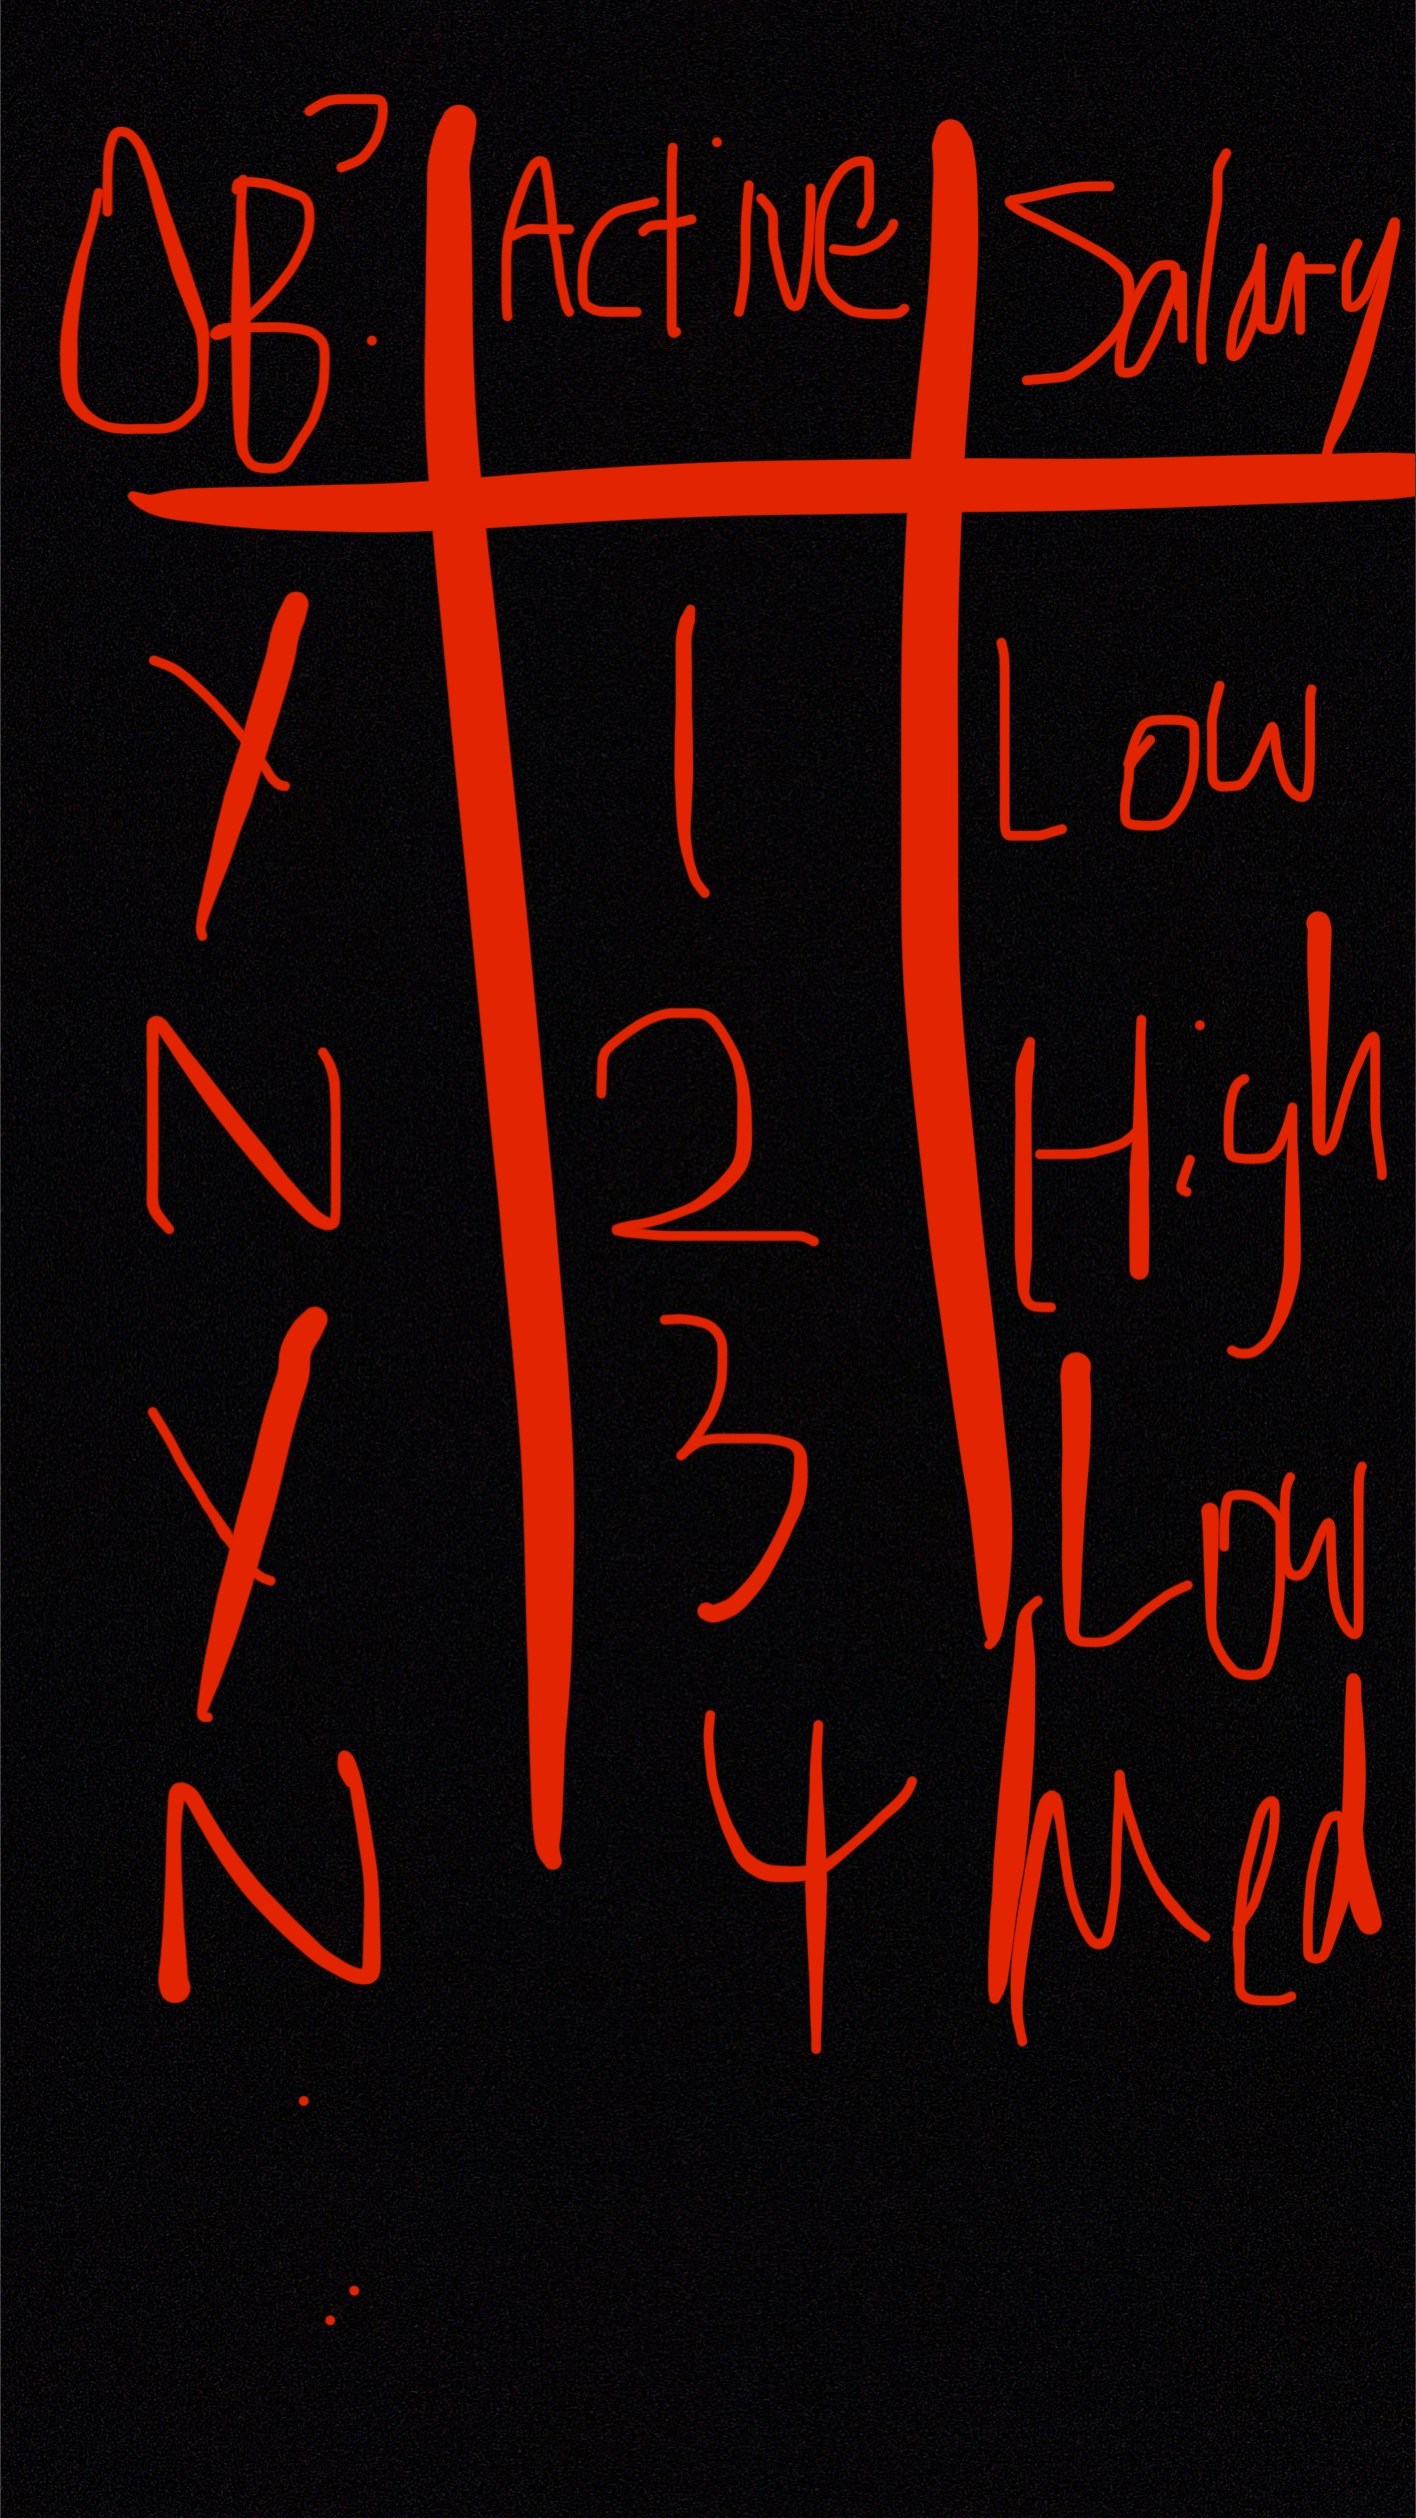 OB? Active Salary
Y 1 Low
N 2 High
Y 3 Low
N 4 Med